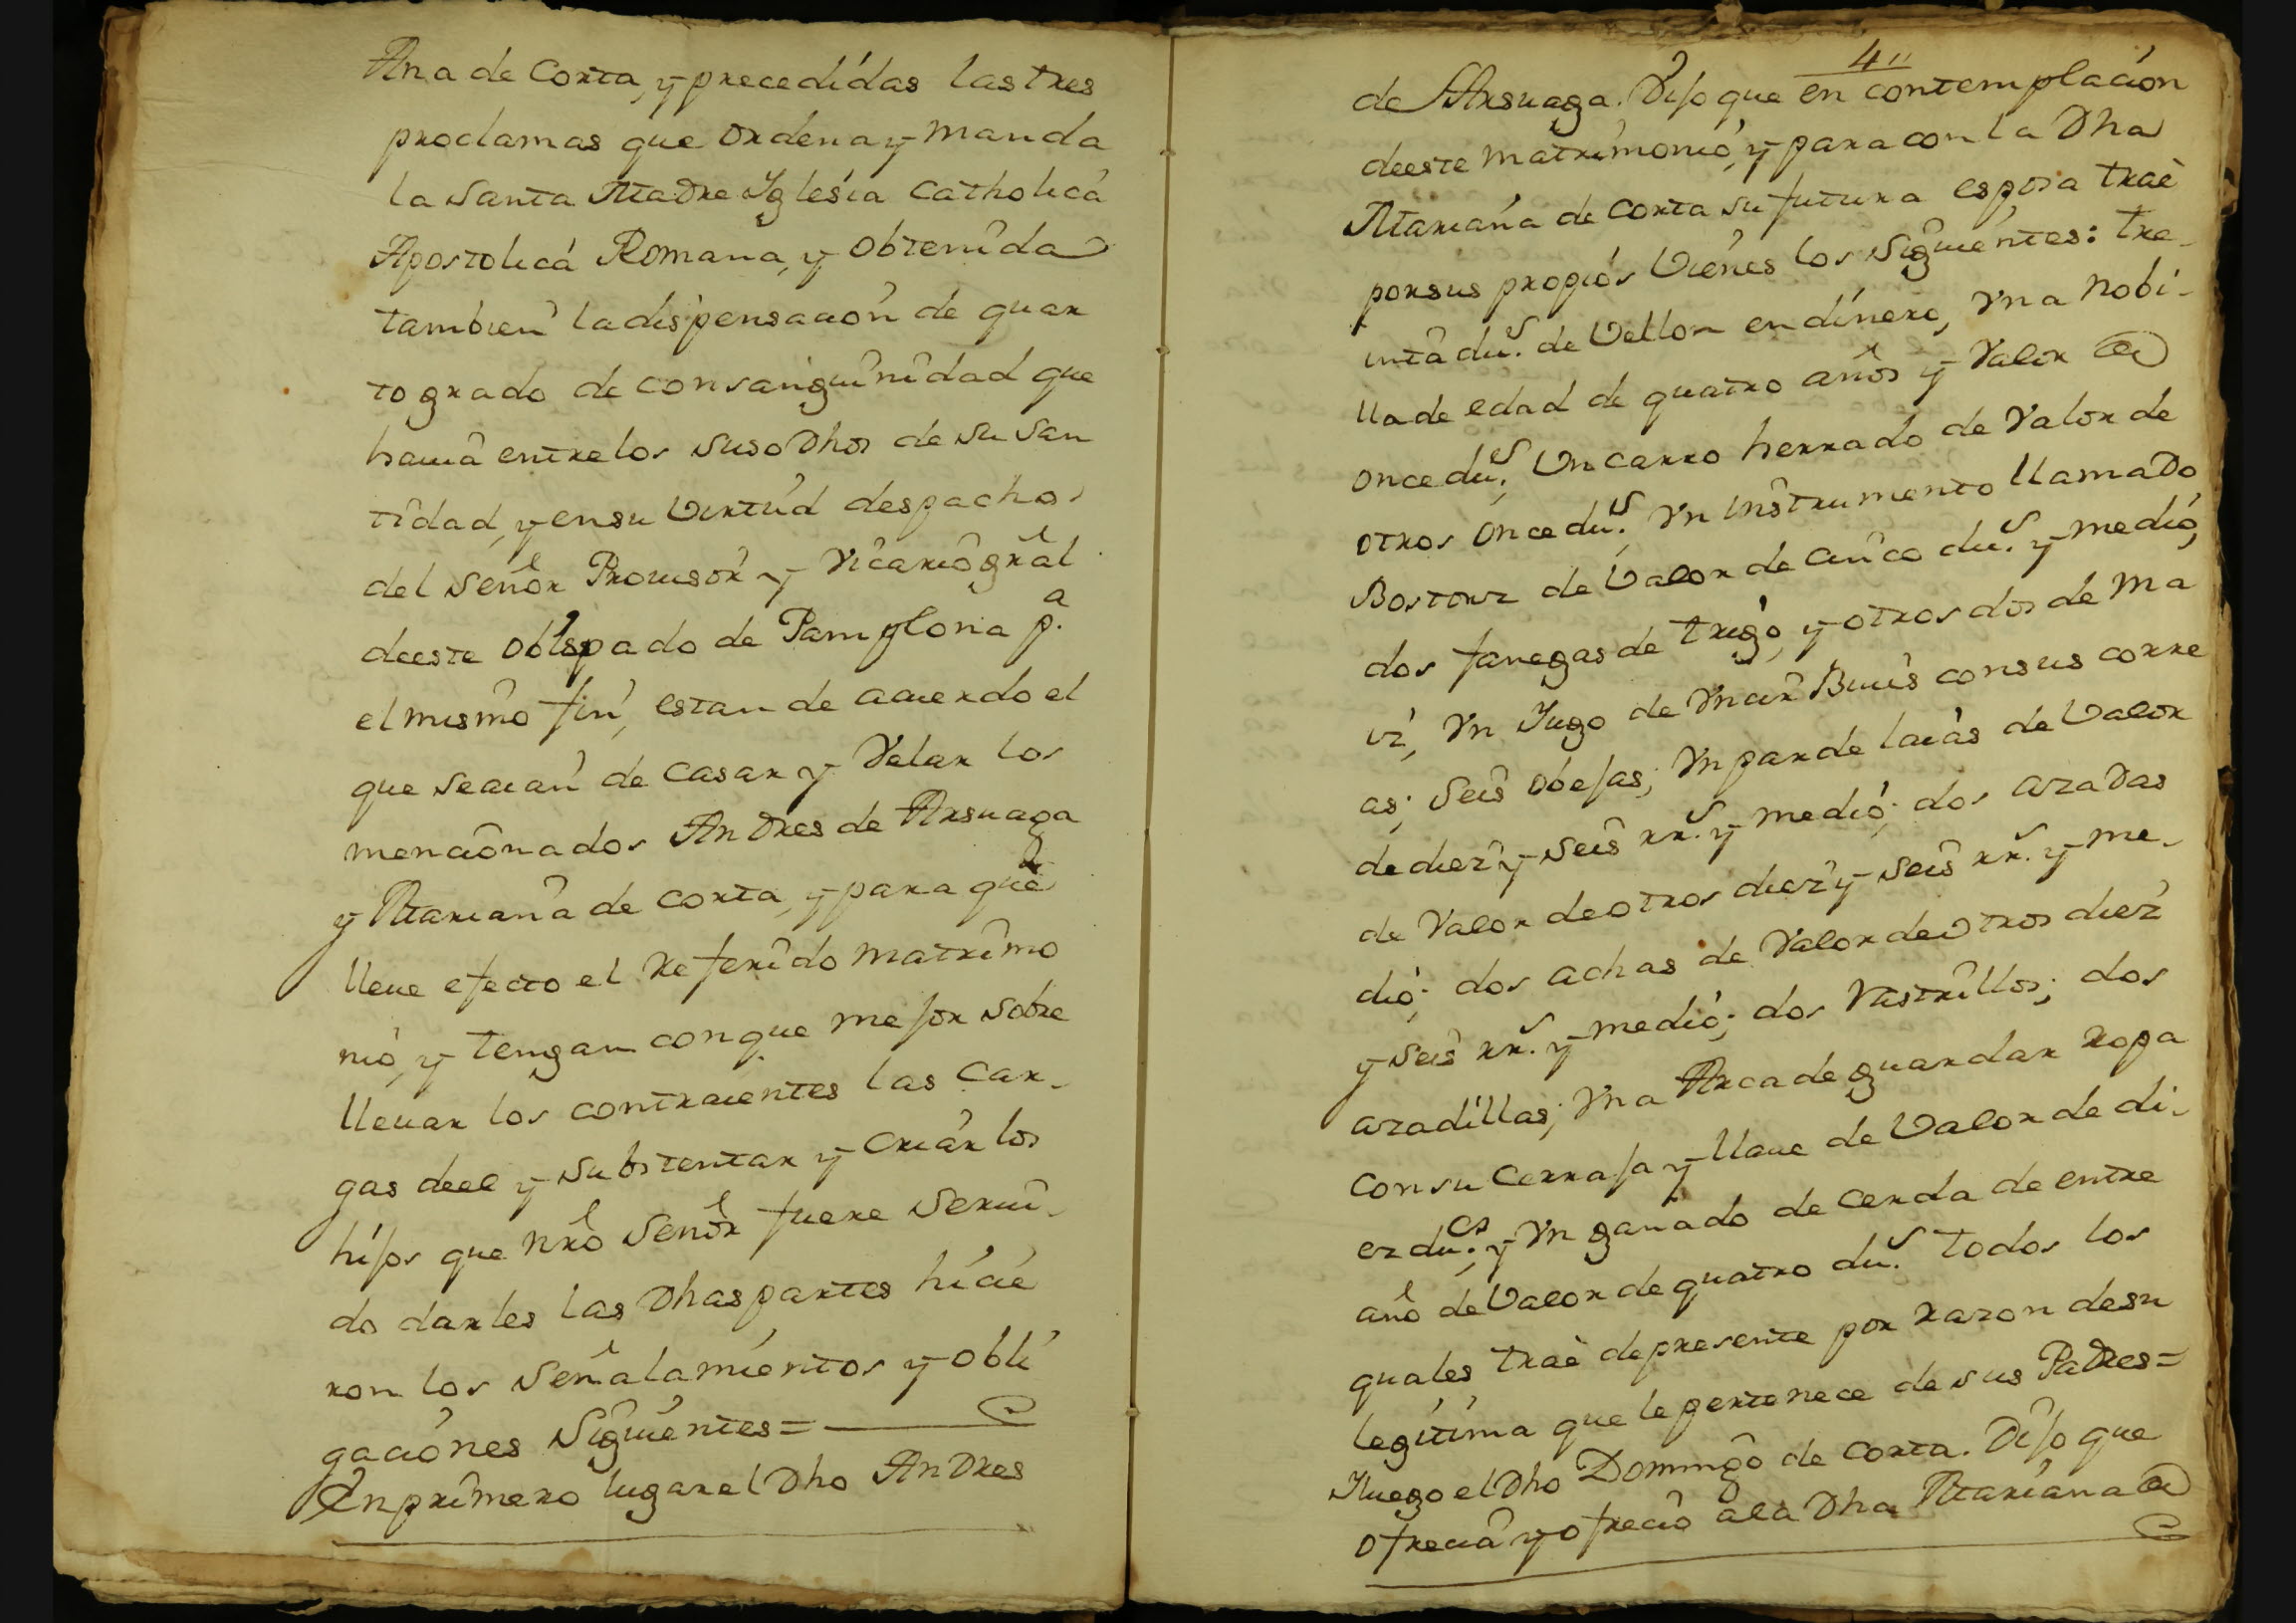 Ana de Corta, y precedidas las tres
proclamas que ordena y manda
la Santa Madre Iglesia Catholica
Apostolica Romana, y obtenida
tambien la dispensacion de quar
to grado de consanguinidad que
hauia entre los susodhos de su San
tidad, y en su Virtud despacho
del Señor Prouisor y Vicario gral
de este obispado de Pamplona p.a
el mismo fin, estan de acuerdo el
que se aian de casar y Velar los
mencionados Andres de Arsuaga
y Mariana de Corta, y para que
lleue efecto el Referido matrimo
nio, y tengan con que mejor sobre
lleuar los contraientes las Car-
gas de el y substentar y Criar los
hijos que nrô Señor fuere Serui-
do darles las Dhas partes hicie
ron los Señalamientos y obli
gaciones Siguientes =
En primero lugar el Dho Andres
4"
de Arsuaga. Dijo que en contemplacion
de este matrimonio, y para con la Dha
Mariana de Corta su futura esposa trae
por sus propios Vienes los Siguientes: tre-
inta du.s de Vellon en dinero, Vna nobi-
lla de edad de quatro años y Valor de
once du.s, Vn carro herrado de Valor de
otros once du.s, Vn instrumento llamado
Bostortz de Valor de cinco du.s y medio,
dos fanegas de trigo, y otros dos de ma
iz, Vn Iugo de Vncir Buies con sus corre
as; Seis obejas; Vn par de laias de Valor
de diez y seis rr.s y medio; dos azadas
de Valor de otros diez y seis rr.s y me-
dio; dos achas de Valor de otros diez
y seis rr.s y medio; dos Rastrillos; dos
azadillas; Vna Arca de guardar ropa
con su Cerraja y llaue de Valor de di-
ez du.cs; y Vn ganado de cerda de entre
año de Valor de quatro du.s todos los
quales trae de presente por razon de su
legitima que le pertenece de sus Padres =
Yluego el Dho Domingo de Corta. Dijo que
ofrecia y ofrecio a la Dha Mariana de